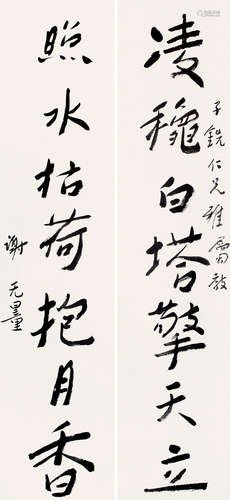 凌穐白塔擎天立
子銑仁兄雅屬
照水枯荷抱月香
謝无量